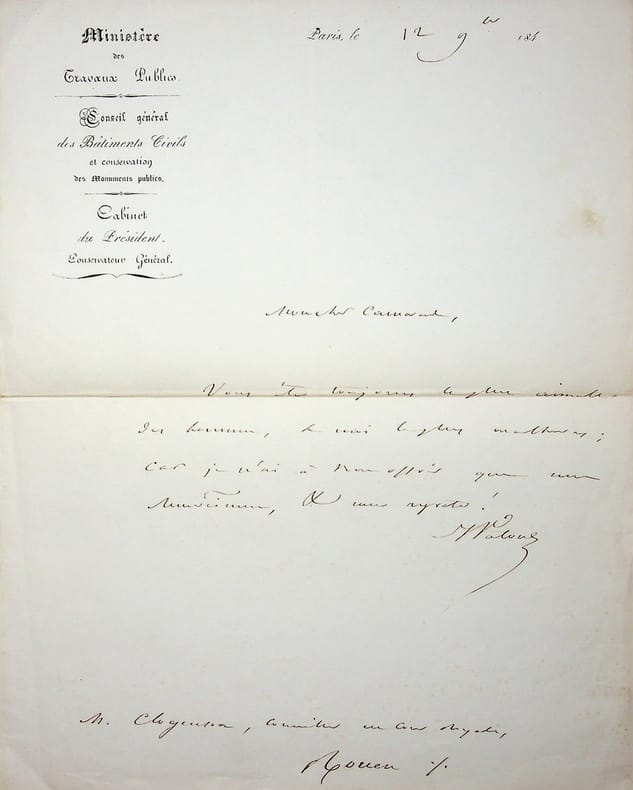 Ministère
des
Travaux Publics.
Conseil général
des Bâtiments Civils
et conservation
des Monuments publics.
Cabinet
du Président.
Conservateur Général.
Paris, le 12 9bre 184
Mon cher Camarade,
Vous êtes toujours le plus aimable
des hommes, & moi le plus malheureux ;
car je n'ai à vous offrir que mes
remerciemens, & mes regrets !
M. Clogenson, conseiller en Cour Royale,
Rouen